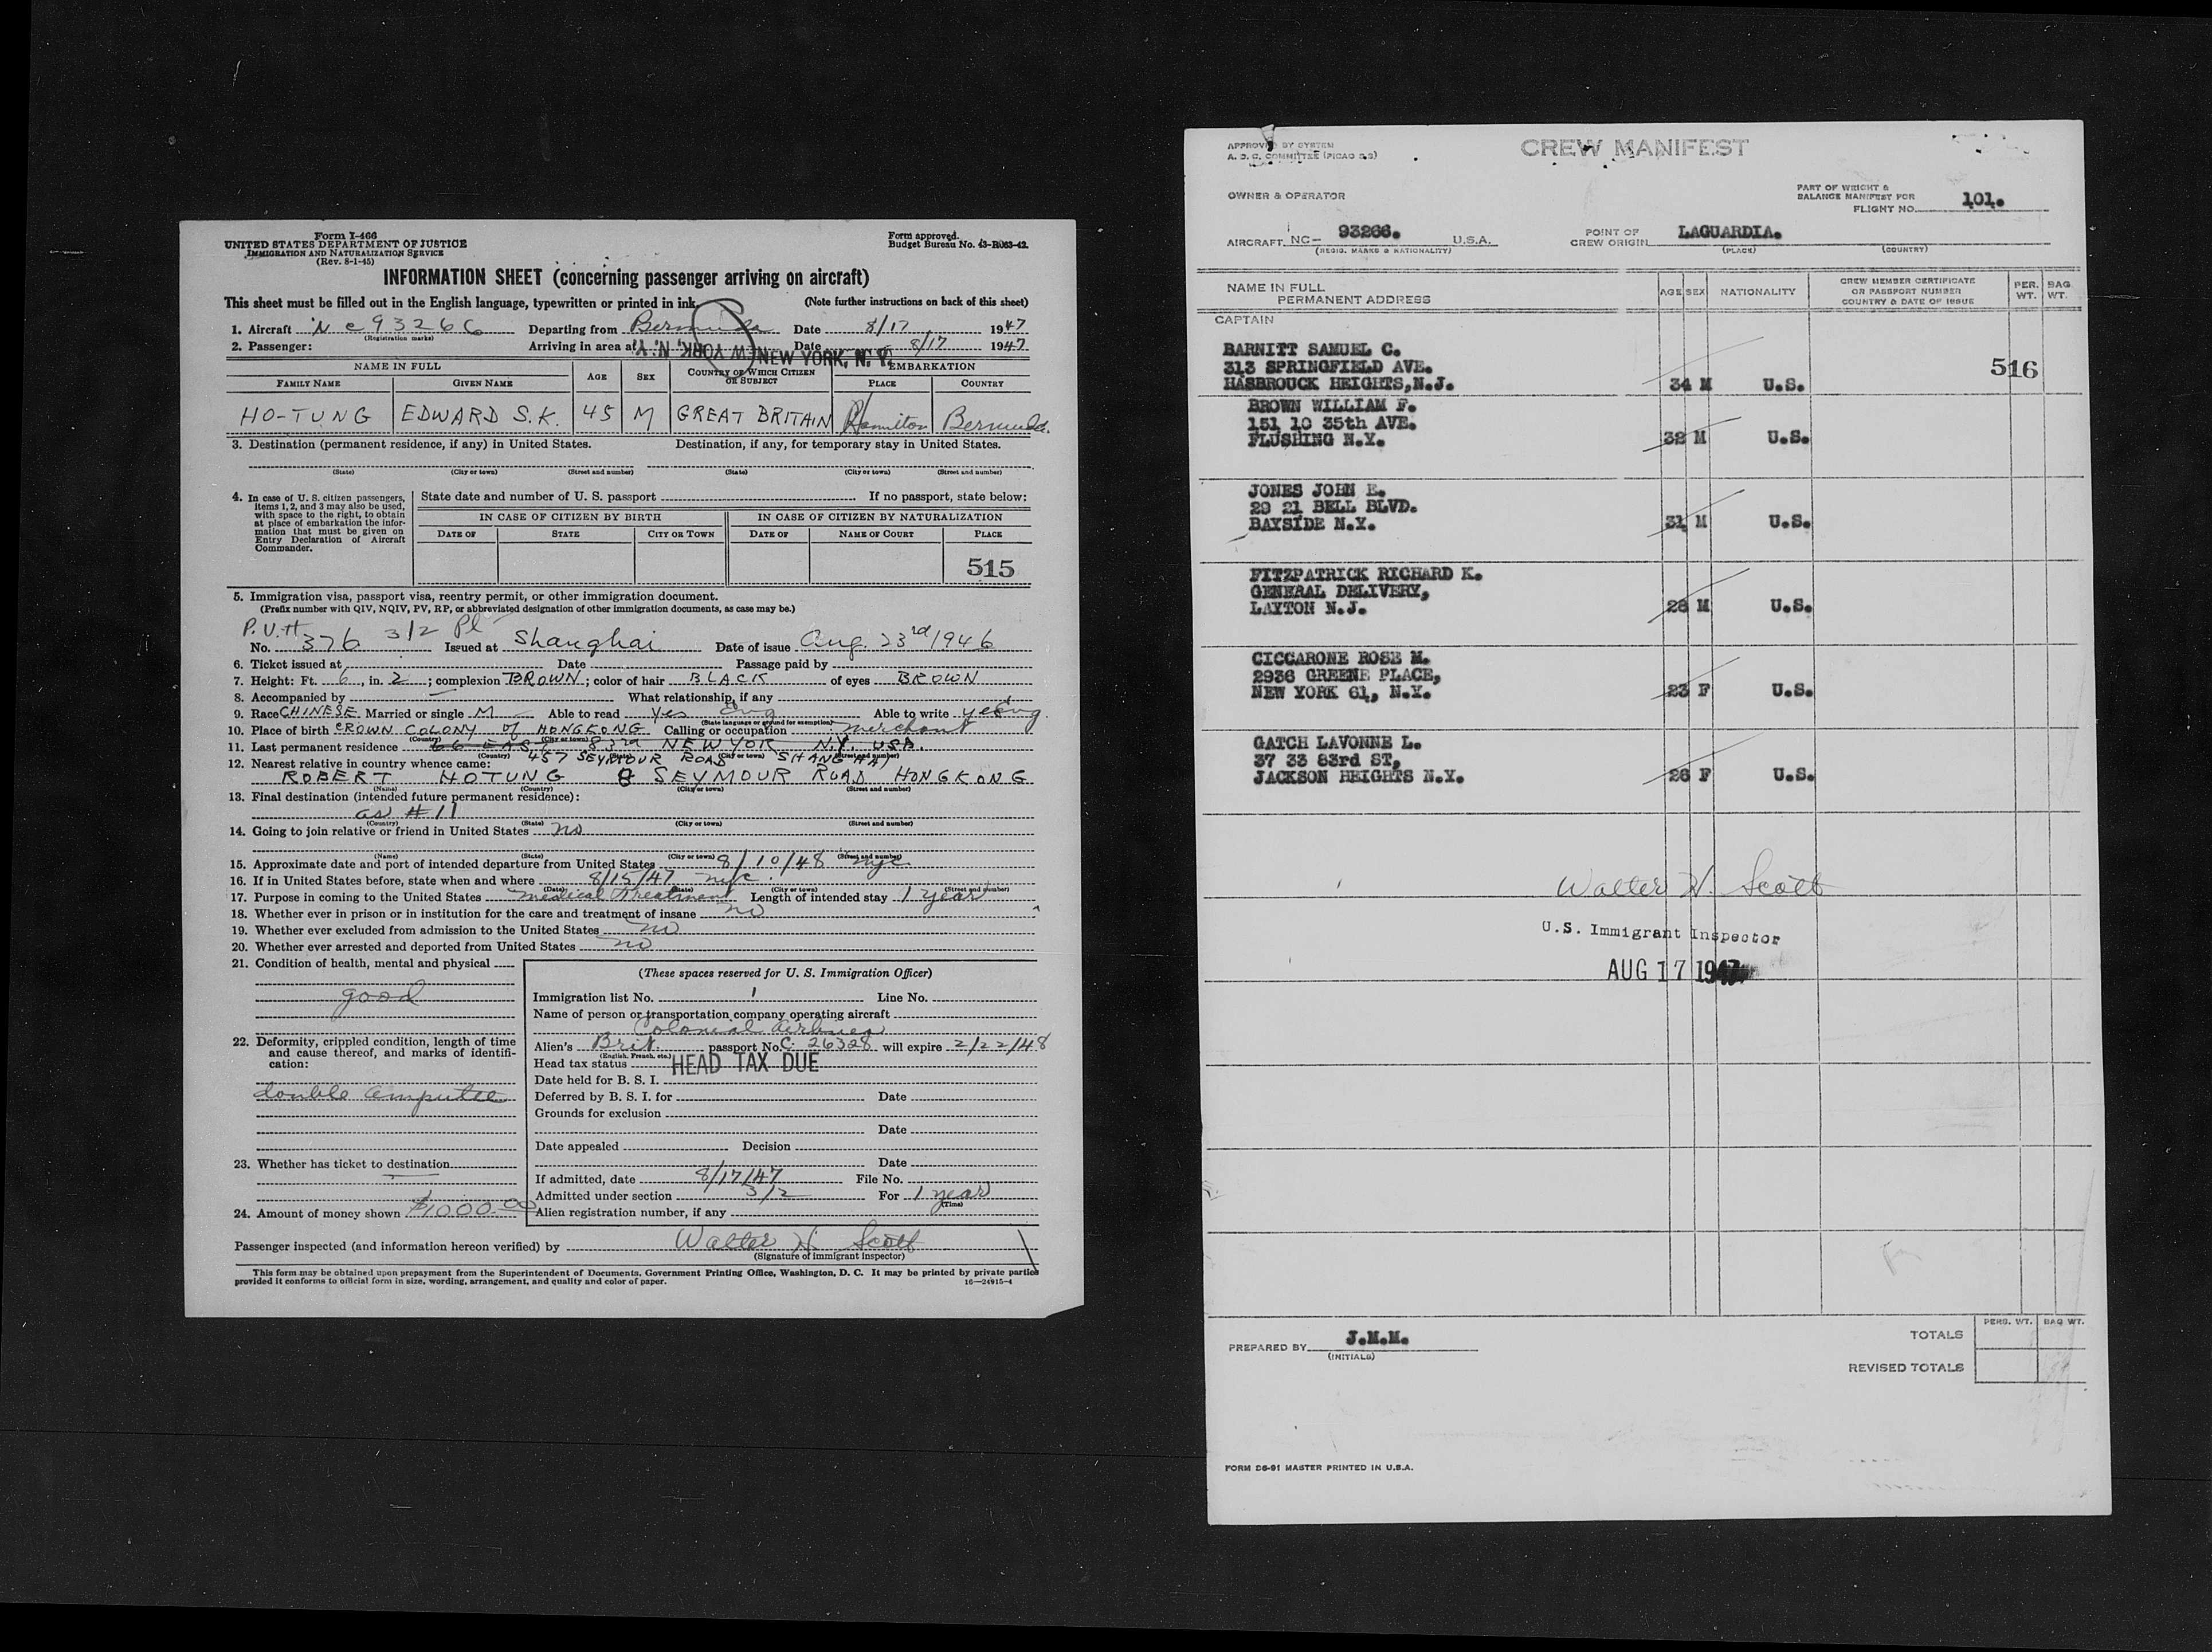 Form I-466
UNITED STATES DEPARTMENT OF JUSTICE
IMMIGRATION AND NATURALIZATION SERVICE
(Rev. 8-1-45)
Form approved.
Budget Bureau No. 43-R083-42.
INFORMATION SHEET (concerning passenger arriving on aircraft)
This sheet must be filled out in the English language, typewritten or printed in ink.
(Note further instructions on back of this sheet)
1. Aircraft N c 93266 Departing from Bermuda Date 8/17, 1947
(Registration marks)
2. Passenger: Arriving in area at NEW YORK, N. Y. NEW YORK, N. Y. Date 8/17 1947
NAME IN FULL AGE SEX COUNTRY OF WHICH CITIZEN OR SUBJECT EMBARKATION
FAMILY NAME GIVEN NAME PLACE COUNTRY
HO-TUNG EDWARD S.K. 45 M GREAT BRITAIN Hamilton Bermuda.
3. Destination (permanent residence, if any) in United States. Destination, if any, for temporary stay in United States.
(State) (City or town) (Street and number) (State) (City or town) (Street and number)
4. In case of U. S. citizen passengers, items 1, 2, and 3 may also be used, with space to the right, to obtain at place of embarkation the information that must be given on Entry Declaration of Aircraft Commander.
State date and number of U. S. passport If no passport, state below:
IN CASE OF CITIZEN BY BIRTH IN CASE OF CITIZEN BY NATURALIZATION
DATE OF STATE CITY OR TOWN DATE OF NAME OF COURT PLACE
515
5. Immigration visa, passport visa, reentry permit, or other immigration document.
(Prefix number with QIV, NQIV, PV, RP, or abbreviated designation of other immigration documents, as case may be.)
P.V.# 3/2 Pl
No. 376 Issued at Shanghai Date of issue Aug. 23rd 1946
6. Ticket issued at Date Passage paid by
7. Height: Ft. 6, in. 2; complexion BROWN; color of hair BLACK of eyes BROWN
8. Accompanied by — What relationship, if any
9. Race CHINESE Married or single M Able to read yes Eng Able to write yes Eng.
(State language or ground for exemption)
10. Place of birth CROWN COLONY of HONGKONG Calling or occupation merchant
(Country) (City or town)
11. Last permanent residence 66 EAST 83rd NEW YORK N.Y. USA.
(Country) (City or town) (Street and number)
457 SEYMOUR ROAD SHANGHAI
12. Nearest relative in country whence came:
ROBERT HOTUNG 8 SEYMOUR ROAD HONGKONG
(Name) (Country) (City or town) (Street and number)
13. Final destination (intended future permanent residence):
as #11
(Country) (State) (City or town) (Street and number)
14. Going to join relative or friend in United States no
(Name) (State) (City or town) (Street and number)
15. Approximate date and port of intended departure from United States 8/10/48 nyc.
16. If in United States before, state when and where 8/15/47 nyc.
(Date) (State) (City or town) (Street and number)
17. Purpose in coming to the United States medical treatment Length of intended stay 1 year
18. Whether ever in prison or in institution for the care and treatment of insane no
19. Whether ever excluded from admission to the United States no
20. Whether ever arrested and deported from United States no
21. Condition of health, mental and physical
good
22. Deformity, crippled condition, length of time and cause thereof, and marks of identification:
double amputee
23. Whether has ticket to destination
24. Amount of money shown $1000.00
(These spaces reserved for U. S. Immigration Officer)
Immigration list No. 1 Line No.
Name of person or transportation company operating aircraft
Colonial Airlines
Alien's Brit. passport No. C 26328 will expire 2/22/48
(English, French, etc.)
Head tax status HEAD TAX DUE
Date held for B. S. I.
Deferred by B. S. I. for Date
Grounds for exclusion
Date
Date appealed Decision
Date
If admitted, date 8/17/47 File No.
Admitted under section 3/2 For 1 year
(Time)
Alien registration number, if any
Passenger inspected (and information hereon verified) by Walter H. Scott
(Signature of immigrant inspector)
This form may be obtained upon prepayment from the Superintendent of Documents, Government Printing Office, Washington, D. C. It may be printed by private parties
provided it conforms to official form in size, wording, arrangement, and quality and color of paper. 16—24915-4
APPROVED BY SYSTEM
A. O. C. COMMITTEE (PICAO 2.3)
CREW MANIFEST
OWNER & OPERATOR
PART OF WEIGHT &
BALANCE MANIFEST FOR
FLIGHT NO. 101.
AIRCRAFT NC- 93266. U.S.A.
(REGIS. MARKS & NATIONALITY)
POINT OF
CREW ORIGIN LAGUARDIA.
(PLACE) (COUNTRY)
NAME IN FULL
PERMANENT ADDRESS
AGE SEX NATIONALITY
CREW MEMBER CERTIFICATE
OR PASSPORT NUMBER
COUNTRY & DATE OF ISSUE
PER. WT. BAG WT.
CAPTAIN
BARNITT SAMUEL C.
313 SPRINGFIELD AVE.
HASBROUCK HEIGHTS,N.J. 34 M U.S.
516
BROWN WILLIAM F.
151 10 35th AVE.
FLUSHING N.Y. 32 M U.S.
JONES JOHN E.
29 21 BELL BLVD.
BAYSIDE N.Y. 31 M U.S.
FITZPATRICK RICHARD K.
GENERAL DELIVERY,
LAYTON N.J. 28 M U.S.
CICCARONE ROSE M.
2936 GREENE PLACE,
NEW YORK 61, N.Y. 23 F U.S.
GATCH LAVONNE L.
37 33 83rd ST,
JACKSON HEIGHTS N.Y. 26 F U.S.
Walter H. Scott
U.S. Immigrant Inspector
AUG 17 1947
PREPARED BY J.M.M.
(INITIALS)
PERS. WT. BAG WT.
TOTALS
REVISED TOTALS
FORM D6-91 MASTER PRINTED IN U.S.A.